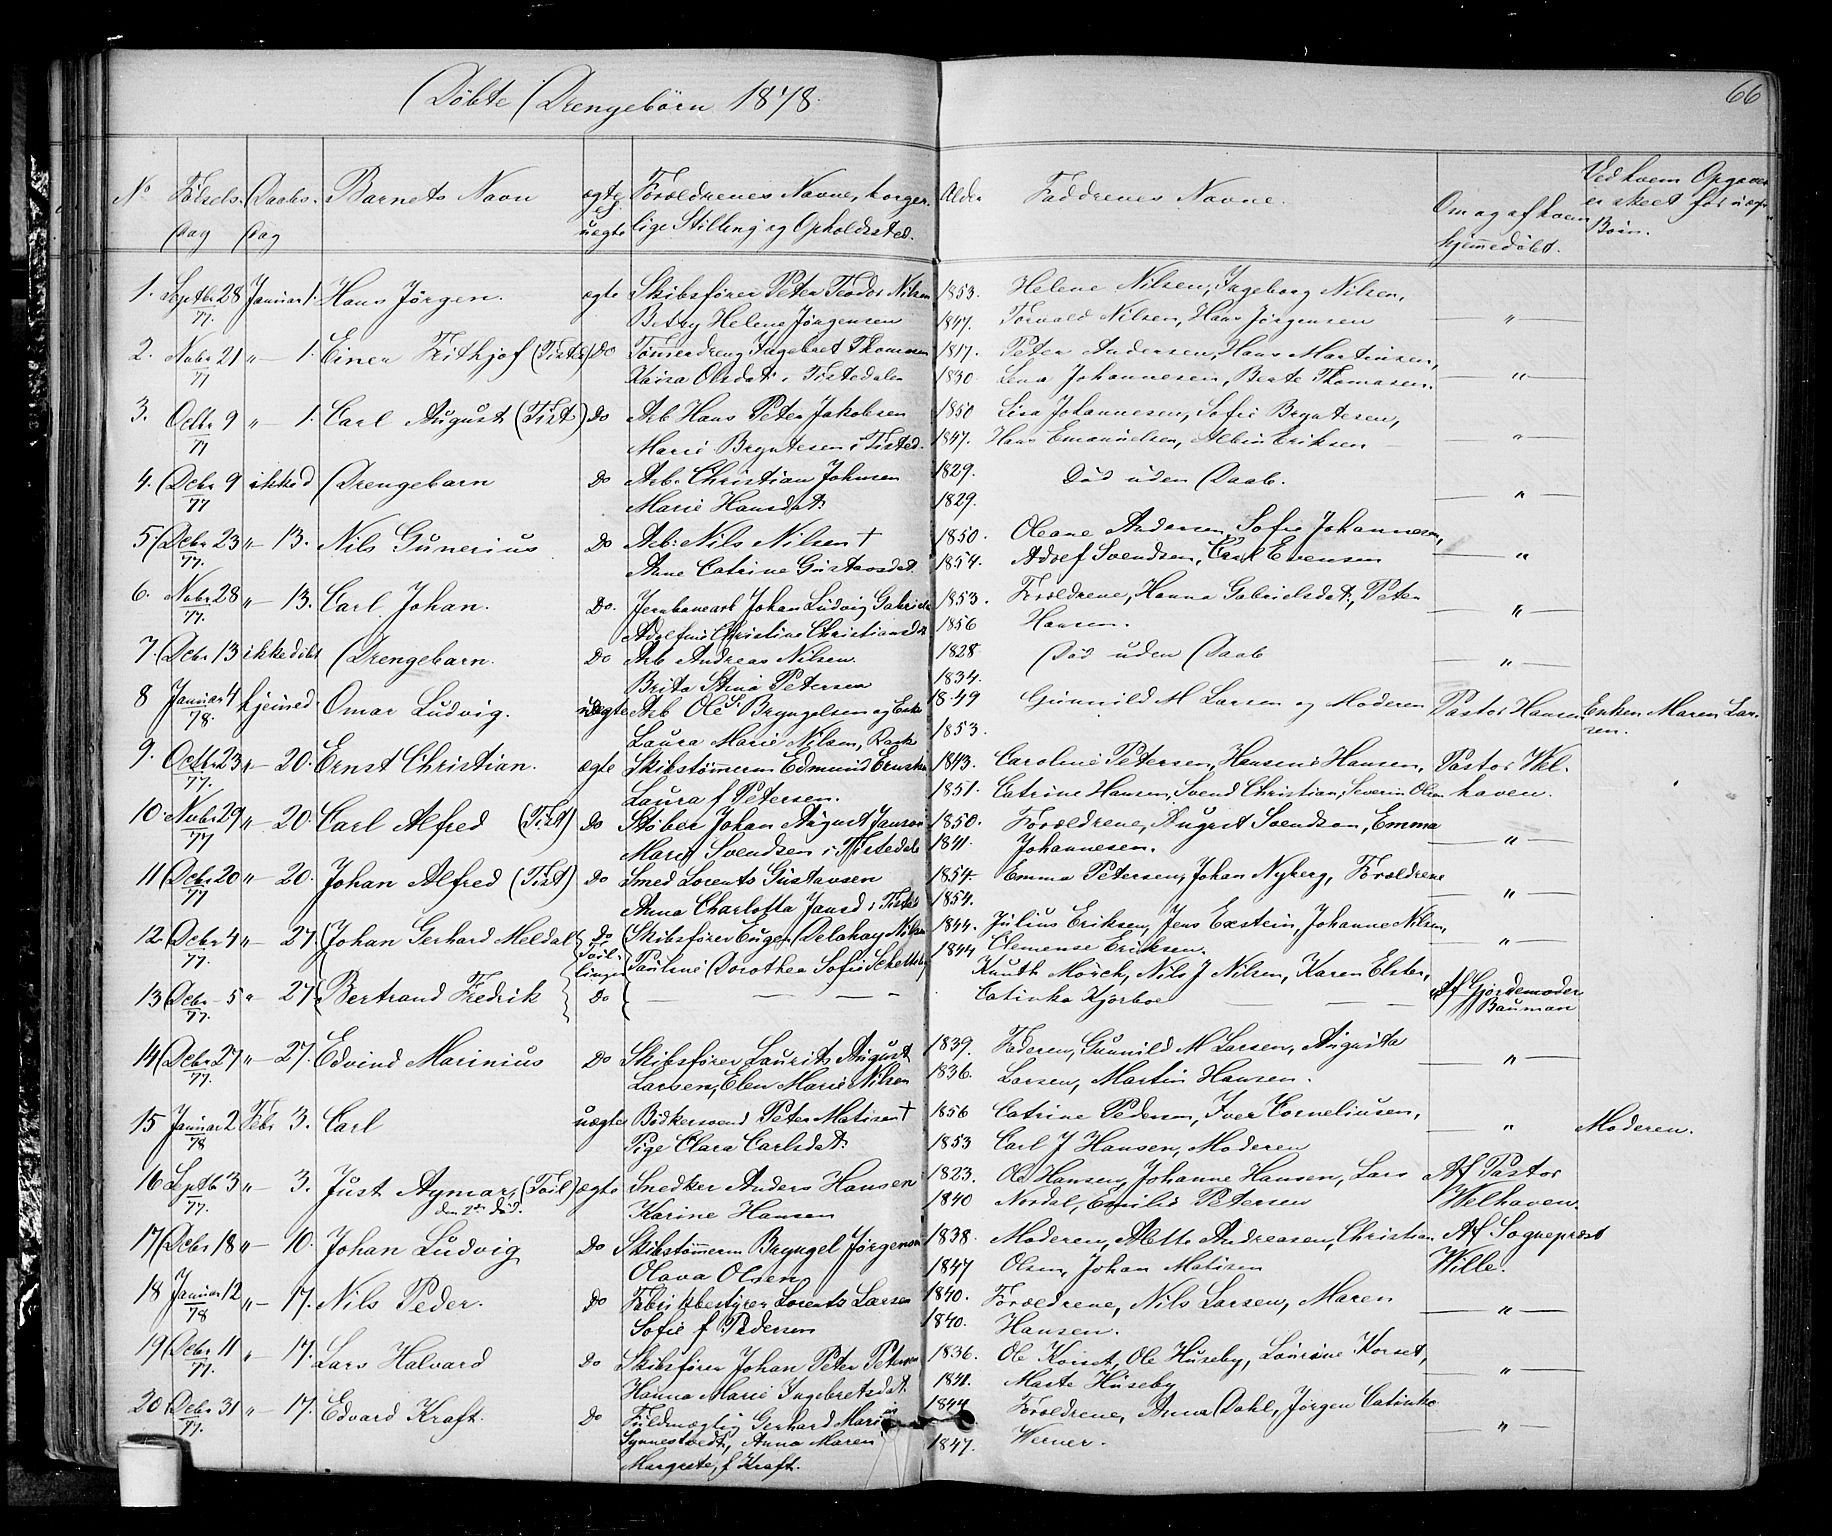 66
Døbte Drengebørn 1878.
No Fødsels Dag Daabs Dag Barnets Navn ægte uægte Forældrenes Navne, borgerlige Stilling og Opholdssted. Alder Faddrenes Navne. Om og af hvem hjemmedøbt. Ved hvem Opgaven er skeet for uægte Børn.
1. Septbr 28 77. Januar 1. Hans Jørgen. ægte Skibsfører Peter Teodor Nilsen 1853. Helene Nilsen, Ingeborg Nilsen,
Betzy Helene Jørgensen 1847. Torvald Nilsen, Hans Jørgensen — " —
2. Novbr 21 77 " — 1. Einer Frithjof (Tist) Do Tømmerdreng Ingebret Thomasen 1817. Peter Andersen, Hans Martinsen,
Kaisa Olsdat. i Tistedalen 1830. Lena Johannesen, Berte Thomasen. — " —
3. Octbr 9 77 " — 1. Carl August (Tist) Do Arb Hans Peter Jakobsen 1850 Lisa Johannesen, Sofie Bryntesen,
Marie Bryntesen i Tisted. 1847. Hans Emanuelsen, Albin Eriksen — " —
4. Dcbr 9 77 ikke d Drengebarn Do Arb. Christian Johnsen 1829. Død uden Daab.
Marie Hansdat. 1829. — " —
5 Dcbr 23 77. " — 13. Nils Gunerius Do Arb: Nils Nilsen + 1850. Oleane Andersen, Sofie Johannesen,
Anne Catrine Gustavsdat. 1854. Adolf Svendsen, Carl Evensen — " —
6. Novbr 28 77. " — 13. Carl Johan. Do. Jernbanearb Johan Ludvig Gabriels 1853. Forældrene, Hanna Gabrielsdat., Peter
Adolfine Christine Christiansdat 1856 Hansen. — " —
7. Dcbr 13 ikke døbt Drengebarn. Do Arb Andreas Nilsen. 1828 Død uden Daab
Brita Stina Petersen 1834. — " —
8 Januar 4 78. hjemed Omar Ludvig. uægte Arb Ole Bryngelsen og Enke 1849 Gunnild M Larsen og Moderen Pastor Hansen Enken Maren Larsen.
Laura Marie Nilsen, 1853.
9. Octbr 23 77. " — 20. Ernst Christian. ægte Skibstømmerm Edmund Ernsten 1843. Caroline Petersen, Hansine Hansen, Pastor Wel-
Laura f Petersen. 1851. Catrine Hansen, Svend Christian, Severin Olsen haven.
10. Novbr 29 77 " — 20. Carl Alfred (Tist) Do Støber Johan August Janson 1850. Forældrene, August Svendsen, Emma
Marie Svendsen i Tistedale 1841. Johannesen. — " —
11 Dcbr 20 77 " — 20. Johan Alfred (Tist) Do Smed Lorents Gustavsen 1854 Emma Petersen, Johan Nyberg, Forældrene
Anna Charlotta Jansd i Tistda 1854. — " —
12 Dcbr 4 77. " — 27 Johan Gerhard Meldal Do Tvillinger Skibsfører Eugen Delahay Nilsen 1844. Julius Eriksen, Jens Exstein, Johanne Nilsen,
Pauline Dorothea Sofie 1844 Clemense Eriksen. — " —
13 Dcbr 5 77. " 27 Bertrand Fredrik Do — — — Knuth Mörch, Nils J Nilsen, Karen Elster,
Catinka Kjørboe — — Af Gjordemoder Bauman
14 Dcbr 27 77. " — 27. Edvind Marinius Do Skibsfører Laurits August 1839. Faderen, Gunnild M Larsen, Augusta
Larsen, Elen Marie Nilsen 1836. Larsen, Martin Hansen. — " —
15 Januar 2 78 Febr 3. Carl uægte Bødkersvend Peter Matisen + 1856 Catrine Pedersen, Iver Corneliusen,
Pige Clara Carlsdat. 1853 Carl J Hansen, Moderen — " — Moderen.
16 Septb 3 77. " — 3. Just Aymar (Tvil) ægte Snedker Anders Hansen 1823. Ole Hansen, Johanne Hansen, Lars Af Pastor
den 2den død. Karine Hansen 1840 Nordal, Emilie Petersen Welhaven.
17 Dcbr 18 " — 10. Johan Ludvig Do Skibstømmerm Bryngel Jørgensen 1838. Moderen, Mette Andreasen, Christian Af Sogneprest
Olava Olsen 1847 Olsen, Johan Matisen Wille.
18 Januar 12 78 " — 17. Nils Peder. Do Fabrikbestyrer Lorents Larsen 1840. Forældrene, Nils Larsen, Maren
Sofie f Pedersen 1840. Hansen. — " —
19 Dcbr 11 77. " — 17. Lars Halvard Do Skibsfører Johan Peter Petersen 1836. Ole Korset, Ole Huseby, Laurine Korset,
Hanna Marie Ingebretsdat. 1841. Marte Huseby — " —
20 Dcbr 31 77. " — 17. Edvard Kraft. Do Fuldmægtig Gerhard Marius 1844 Forældrene, Anna Dahl, Jørgen Catinka
Synnestvedt, Anna Maren 1847. Werner. — " —
Margrete, f Kraft.